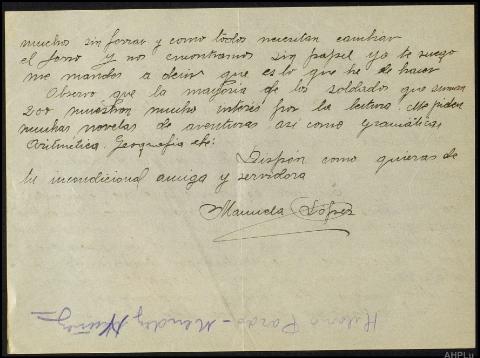 muchos sin forrar y como todos necesitan cambiar
el forro y no encontramos sin papel yo te ruego
me mandes a decir que es lo que he de hacer
Observo que la mayoria de los soldados que suman
200 muestran mucho interés por la lectura. Me piden
muchas novelas de aventuras asi como gramáticas
Aritmetica. Geografia etc:
Dispón como quieras de
tu incondicional amiga y servidora
Manuela López
Pardo - Mendez Nuñez
AHPLu